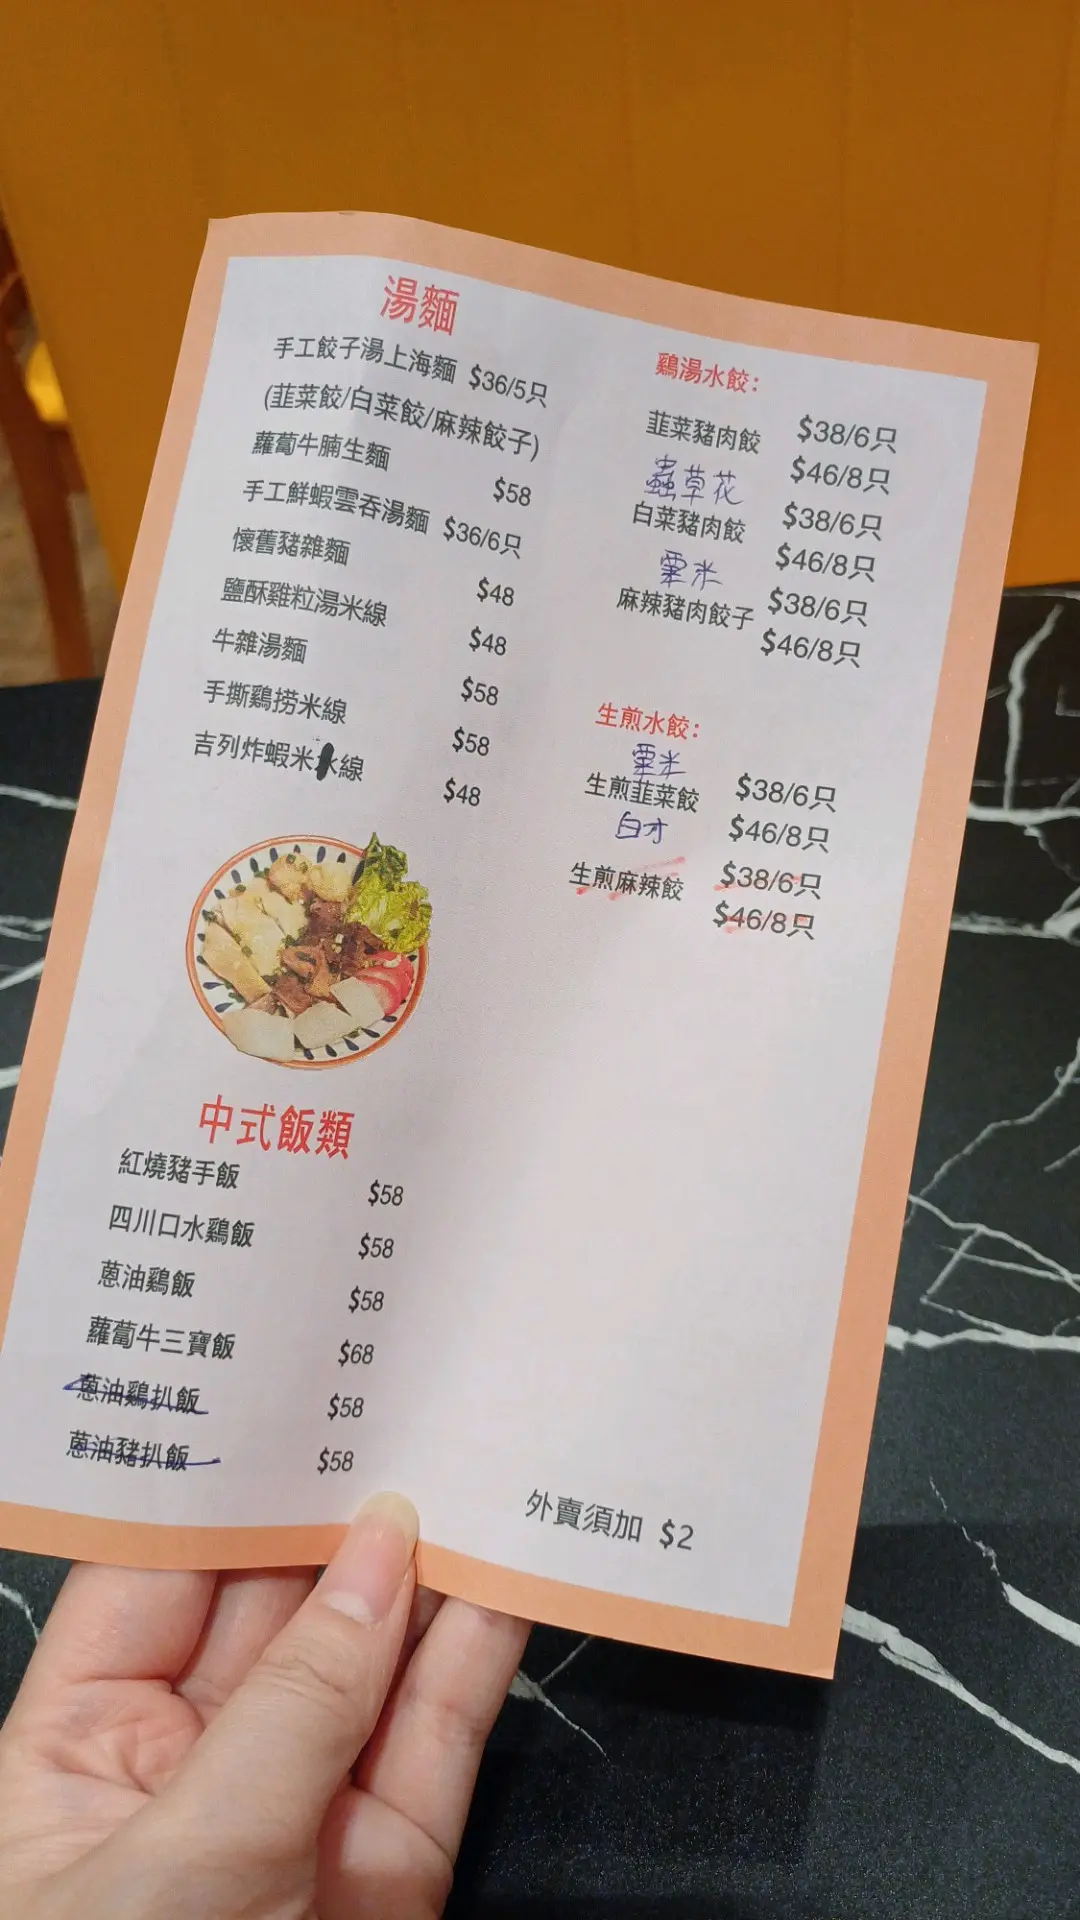 湯麵
手工餃子湯上海麵 $36/5只
(韮菜餃/白菜餃/麻辣餃子)
蘿蔔牛腩生麵 $58
手工鮮蝦雲吞湯麵 $36/6只
懷舊豬雜麵 $48
鹽酥雞粒湯米線 $48
牛雜湯麵 $58
手撕鷄捞米線 $58
吉列炸蝦米線 $48
中式飯類
紅燒豬手飯 $58
四川口水鷄飯 $58
蔥油鷄飯 $58
蘿蔔牛三寶飯 $68
蔥油鷄扒飯 $58
蔥油豬扒飯 $58
鷄湯水餃:
韮菜豬肉餃 $38/6只
$46/8只
蟲草花
白菜豬肉餃 $38/6只
$46/8只
粟米
麻辣豬肉餃子 $38/6只
$46/8只
生煎水餃:
粟米
生煎韮菜餃 $38/6只
$46/8只
白才
生煎麻辣餃 $38/6只
$46/8只
外賣須加 $2